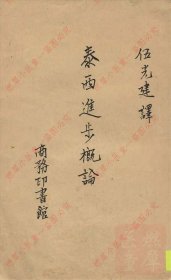 伍光建譯
泰西進步概論
商務印書館